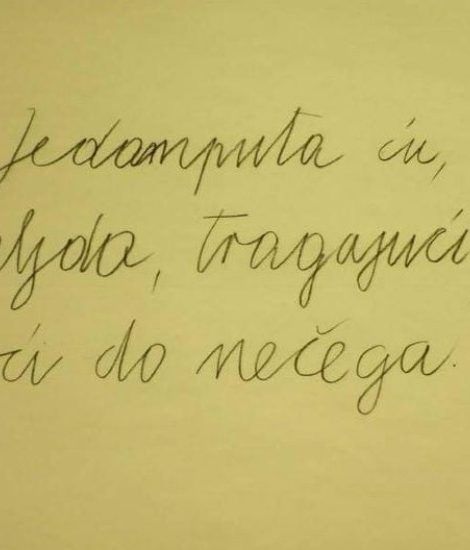 Jedamputa ću,
eljda, tragajući
ći do nečega.